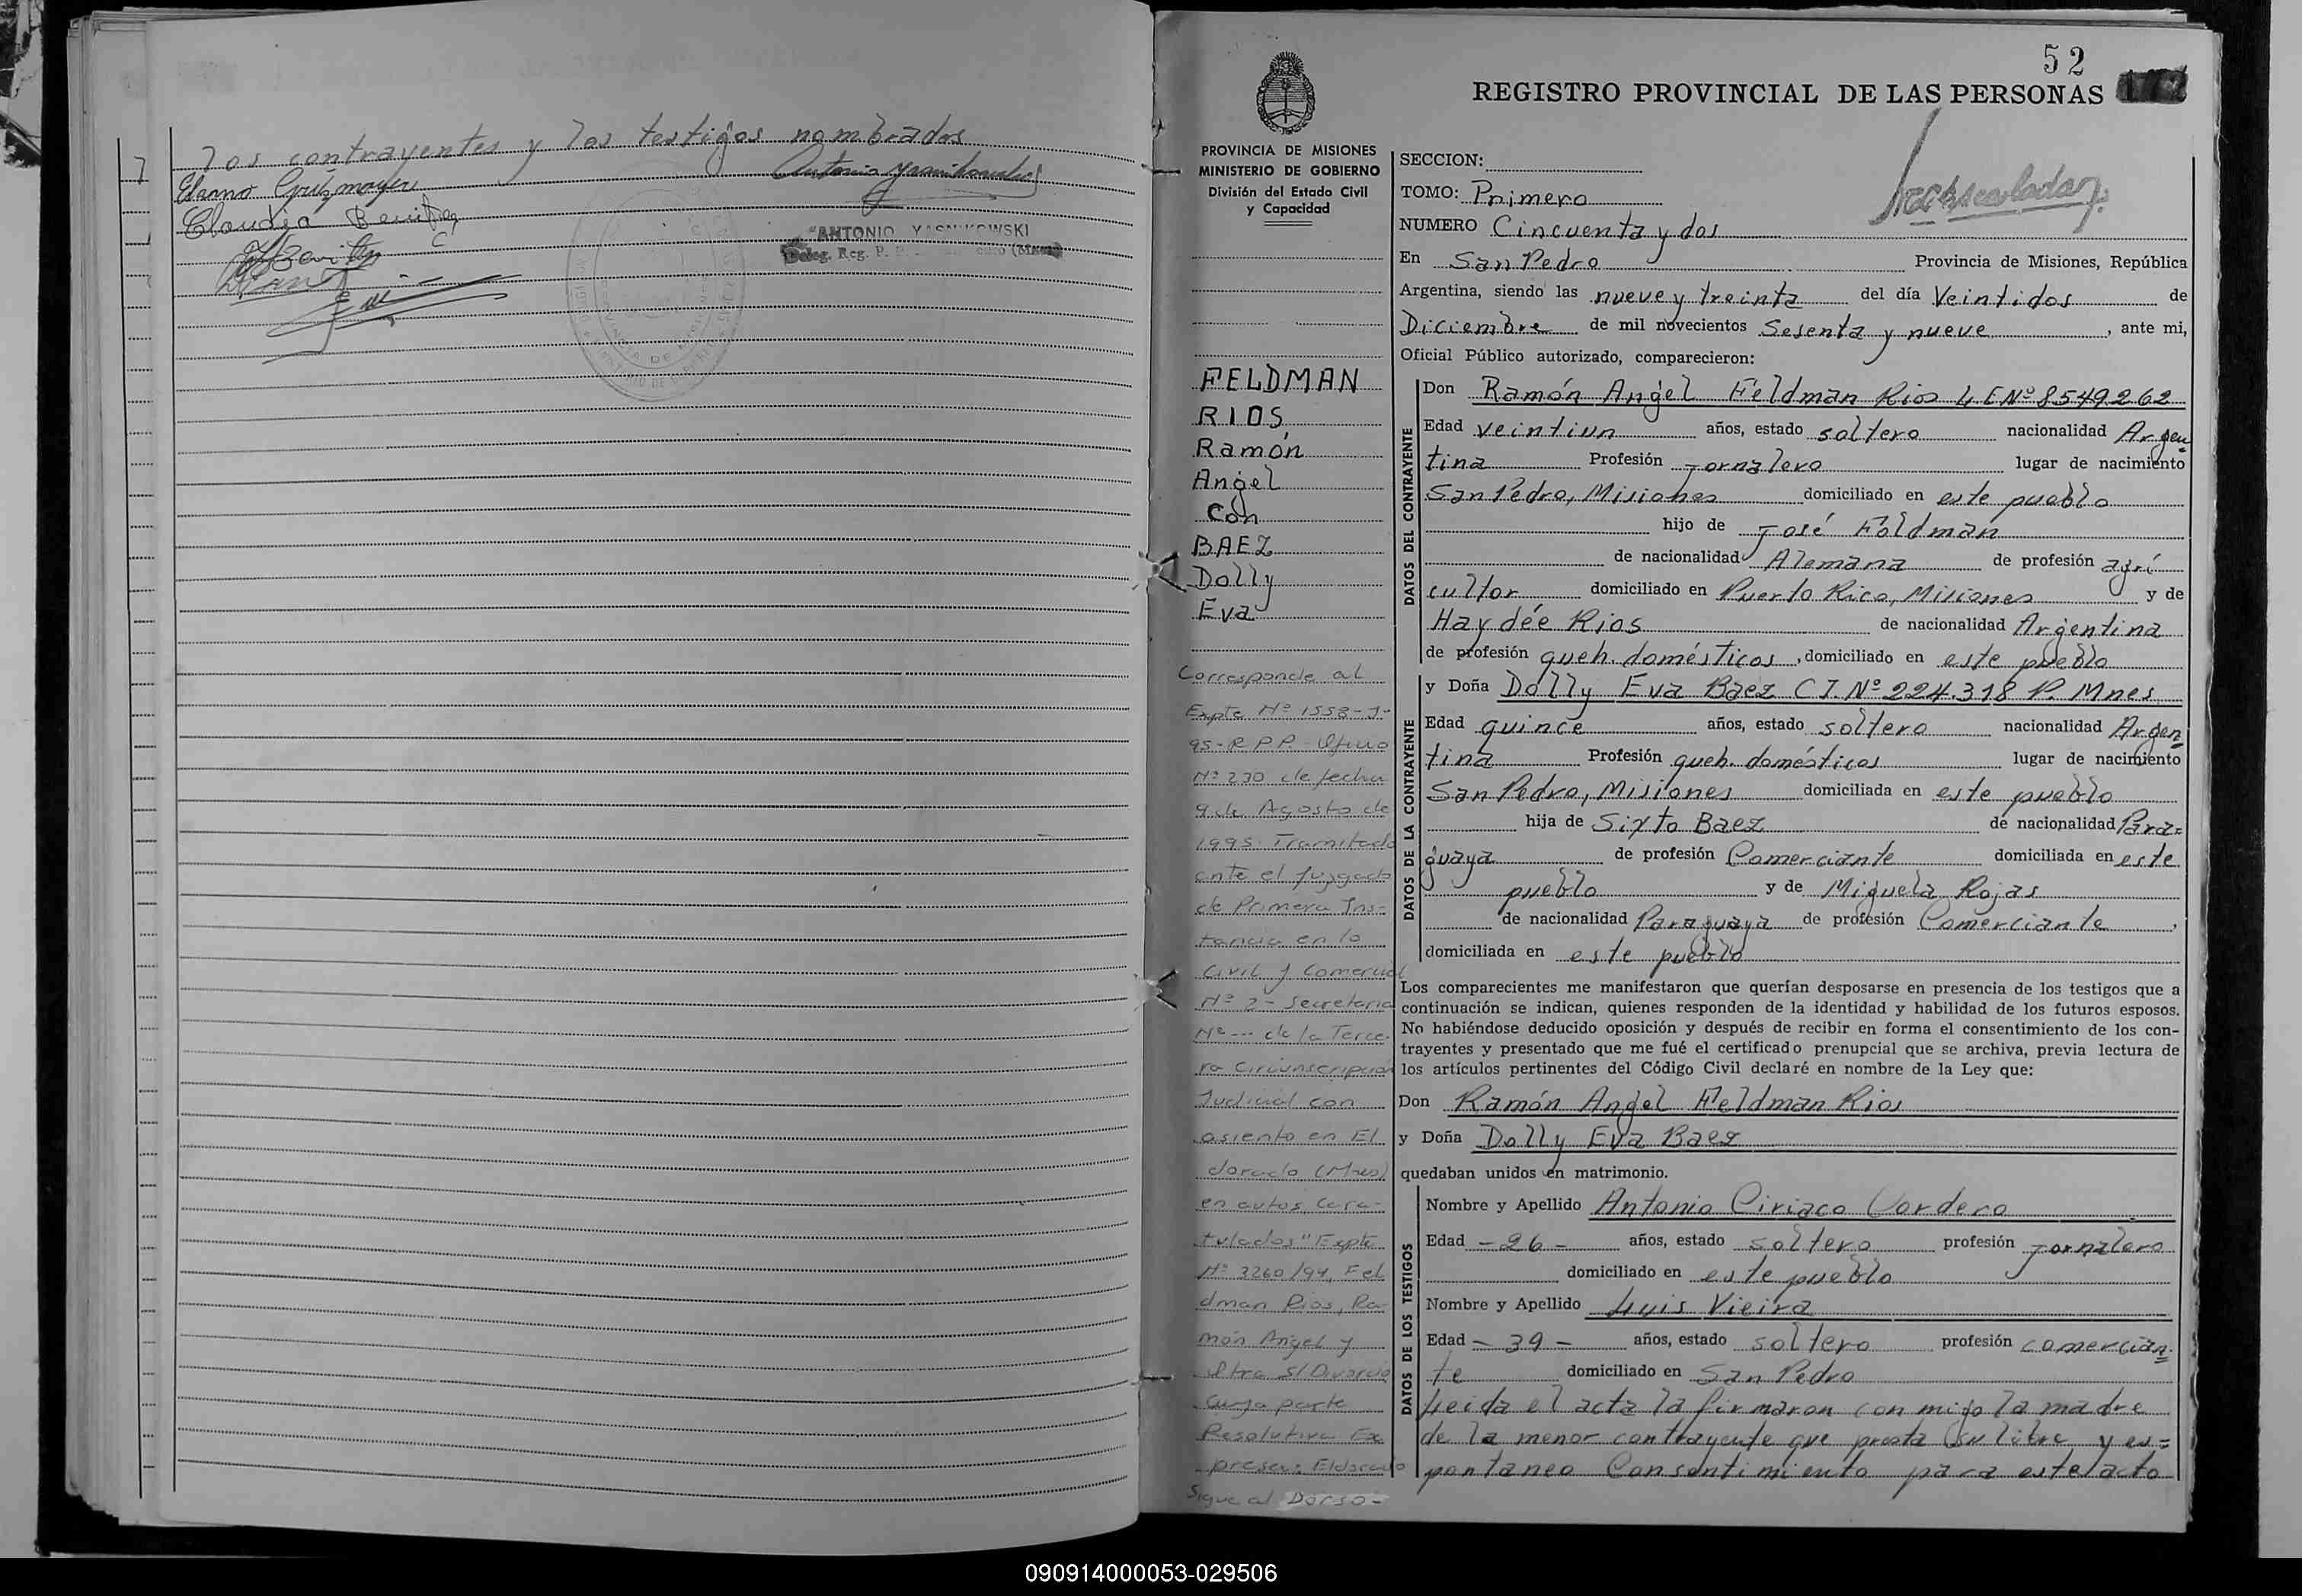 los contrayentes y los testigos nombrados
Claudia Benitez
"ANTONIO YASNIKOWSKI
Deleg. Reg. P. P.
52
REGISTRO PROVINCIAL DE LAS PERSONAS
PROVINCIA DE MISIONES
MINISTERIO DE GOBIERNO
División del Estado Civil
y Capacidad
FELDMAN
RIOS
Ramón
Angel
Con
BAEZ
Dolly
Eva
Corresponde al
Expte Nº 1553-J-
95-R.P.P.- Oficio
Nº 230 de fecha
9 de Agosto de
1995. Tramitado
ante el Juzgado
de Primera Ins-
tancia en lo
Civil y Comercial
Nº 2- Secretaria
Nº --- de la Terce-
ra Circunscripción
Judicial con
asiento en El
dorado (Mnes)
en autos cara-
tulados "Expte
Nº 3260/94, Fel
dman Rios, Ra-
món Angel y
Otra S/ Divorcio
cuya parte
Resolutiva Ex
presa: Eldorado
Sigue al Dorso-
SECCION:
TOMO: Primero
NUMERO Cincuenta y dos
En San Pedro Provincia de Misiones, República
Argentina, siendo las nueve y treinta del día Veintidos de
Diciembre de mil novecientos Sesenta y nueve, ante mi,
Oficial Público autorizado, comparecieron:
DATOS DEL CONTRAYENTE
Don Ramón Angel Feldman Rios L E Nº 8549262
Edad veintiun años, estado soltero nacionalidad Argen
tina Profesión Jornalero lugar de nacimiento
San Pedro, Misiones domiciliado en este pueblo
hijo de José Féldman
de nacionalidad Alemana de profesión agrí
cultor domiciliado en Puerto Rico, Misiones y de
Haydée Rios de nacionalidad Argentina
de profesión queh. domésticos, domiciliado en este pueblo
DATOS DE LA CONTRAYENTE
y Doña Dolly Eva Baez C I. Nº 224.318 P. Mnes
Edad quince años, estado soltera nacionalidad Argen
tina Profesión queh. domésticos lugar de nacimiento
San Pedro, Misiones domiciliada en este pueblo
hija de Sixto Baez de nacionalidad Para=
guaya de profesión Comerciante domiciliada en este
pueblo y de Miguela Rojas
de nacionalidad Paraguaya de profesión Comerciante,
domiciliada en este pueblo
Los comparecientes me manifestaron que querían desposarse en presencia de los testigos que a
continuación se indican, quienes responden de la identidad y habilidad de los futuros esposos.
No habiéndose deducido oposición y después de recibir en forma el consentimiento de los con-
trayentes y presentado que me fué el certificado prenupcial que se archiva, previa lectura de
los artículos pertinentes del Código Civil declaré en nombre de la Ley que:
Don Ramón Angel Feldman Rios
y Doña Dolly Eva Baez
quedaban unidos en matrimonio.
DATOS DE LOS TESTIGOS
Nombre y Apellido Antonio Ciriaco Cordero
Edad -26- años, estado soltero profesión Jornalero
domiciliado en este pueblo
Nombre y Apellido Luis Vieira
Edad -39- años, estado soltero profesión comercian=
te domiciliado en San Pedro
Leida el acta la firmaron conmigo la madre
de la menor contrayente que presta su libre y es=
pontaneo Consentimiento para este acto
090914000053-029506